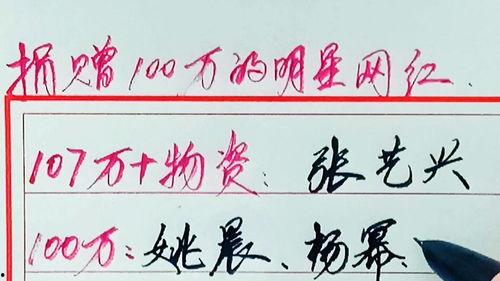 捐赠100万的明星网红.
107万+物资：张艺兴
100万：姚晨、杨幂、